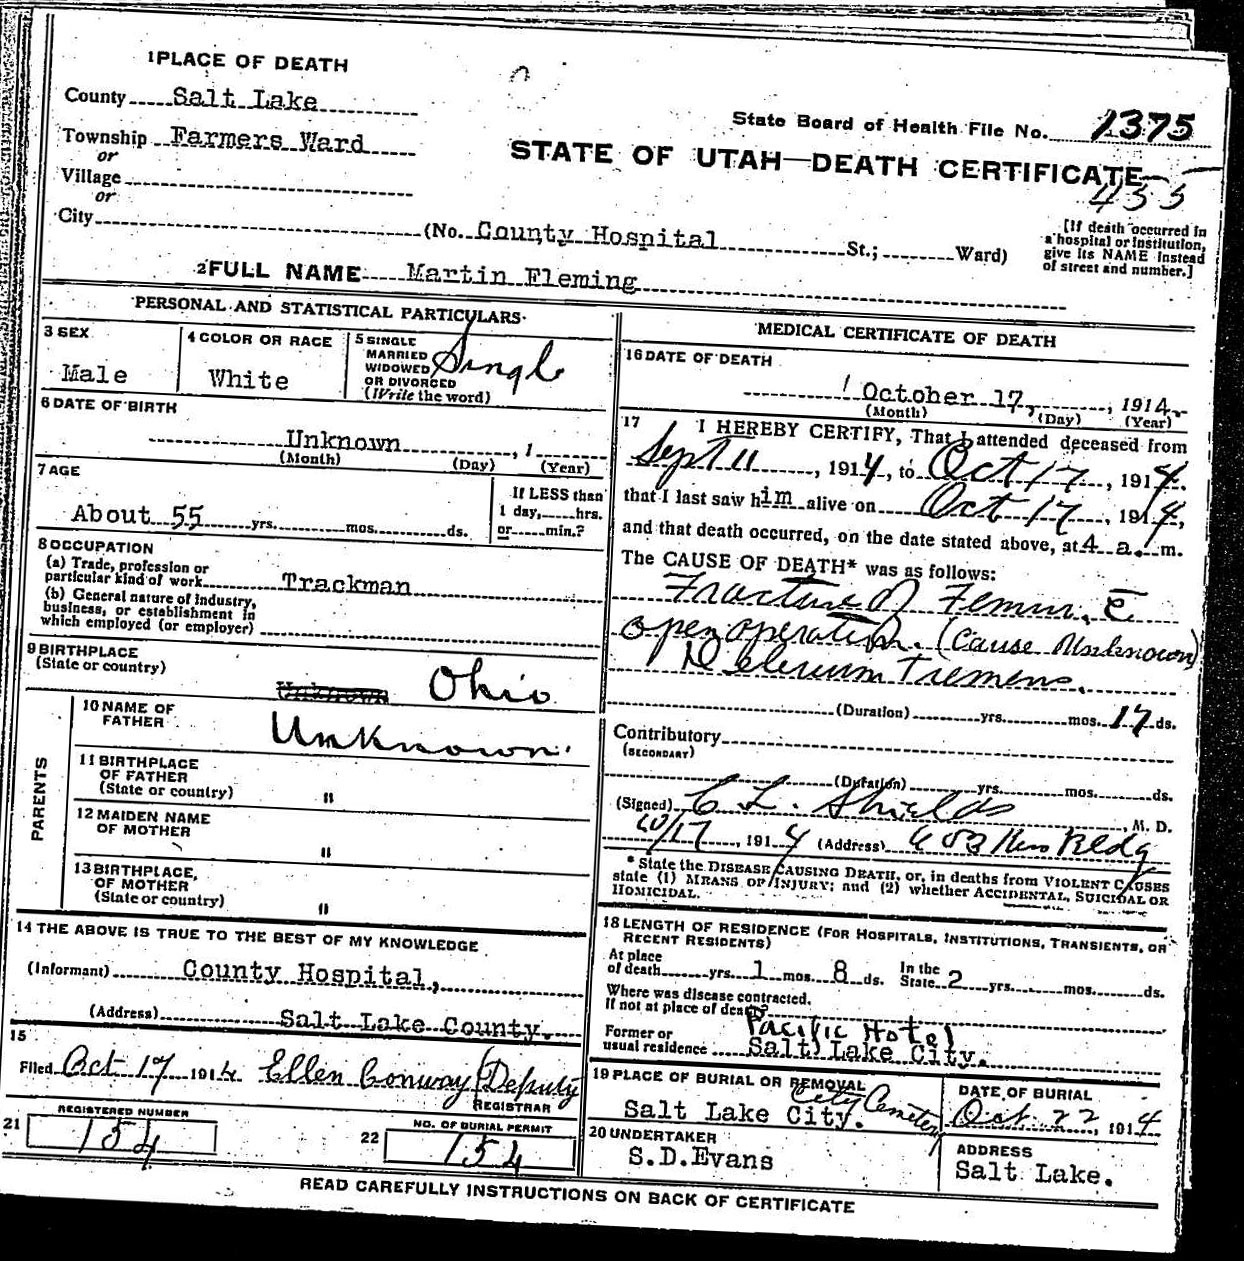 1 PLACE OF DEATH
County Salt Lake
State Board of Health File No. 1375
Township Farmers Ward
or
STATE OF UTAH—DEATH CERTIFICATE
455
Village
or
City (No. County Hospital St.; Ward)
[If death occurred in
a hospital or institution,
give its NAME instead
of street and number.]
2 FULL NAME Martin Fleming
PERSONAL AND STATISTICAL PARTICULARS
3 SEX
Male
4 COLOR OR RACE
White
5 SINGLE
MARRIED
WIDOWED
OR DIVORCED
(Write the word)
Single
6 DATE OF BIRTH
Unknown , 1
(Month) (Day) (Year)
7 AGE
About 55 yrs. mos. ds.
If LESS than
1 day, hrs.
or min.?
8 OCCUPATION
(a) Trade, profession or
particular kind of work Trackman
(b) General nature of industry,
business, or establishment in
which employed (or employer)
9 BIRTHPLACE
(State or country)
Unknown Ohio
PARENTS
10 NAME OF
FATHER
Unknown
11 BIRTHPLACE
OF FATHER
(State or country) "
12 MAIDEN NAME
OF MOTHER
"
13 BIRTHPLACE,
OF MOTHER
(State or country) "
14 THE ABOVE IS TRUE TO THE BEST OF MY KNOWLEDGE
(Informant) County Hospital,
(Address) Salt Lake County.
15
Filed Oct 17 1914 Ellen Conway (Deputy
REGISTRAR
21 REGISTERED NUMBER
154
22 NO. OF BURIAL PERMIT
154
MEDICAL CERTIFICATE OF DEATH
16 DATE OF DEATH
October 17, , 1914.
(Month) (Day) (Year)
17 I HEREBY CERTIFY, That I attended deceased from
Sept 11 , 1914, to Oct 17 , 1914.
that I last saw him alive on Oct 17 , 1914,
and that death occurred, on the date stated above, at 4 a. m.
The CAUSE OF DEATH* was as follows:
Fracture of Femur. c̄
open operation. (Cause Unknown)
Delerium Tremens.
(Duration) yrs. mos. 17 ds.
Contributory
(SECONDARY)
(Duration) yrs. mos. ds.
(Signed) C L. Shields , M. D.
10/17 , 1914 (Address) Bldg
* State the DISEASE CAUSING DEATH, or, in deaths from VIOLENT CAUSES
state (1) MEANS OF INJURY; and (2) whether ACCIDENTAL, SUICIDAL OR
HOMICIDAL.
18 LENGTH OF RESIDENCE (FOR HOSPITALS, INSTITUTIONS, TRANSIENTS, OR
RECENT RESIDENTS)
At place
of death yrs. 1 mos. 8 ds. In the
State 2 yrs. mos. ds.
Where was disease contracted.
If not at place of death?
Pacific Hotel
Former or
usual residence Salt Lake City.
19 PLACE OF BURIAL OR REMOVAL
City Cemetery
Salt Lake City.
DATE OF BURIAL
Oct. 22, 1914
20 UNDERTAKER
S.D.Evans
ADDRESS
Salt Lake.
READ CAREFULLY INSTRUCTIONS ON BACK OF CERTIFICATE